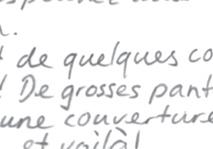 n.
de quelques co
! De grosses pant
une couverture
et voilà!